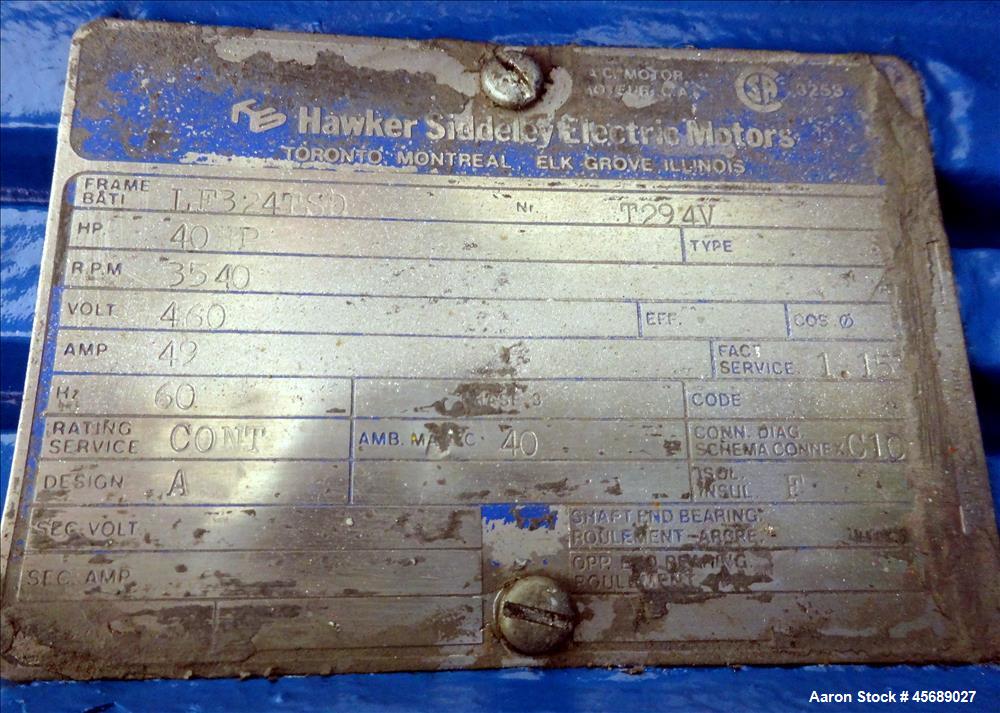 A.C. MOTOR
MOTEUR C.A.
CSA 3253
Hawker Siddeley Electric Motors
TORONTO, MONTREAL, ELK GROVE, ILLINOIS
FRAME
BÂTI LF324TSD Nr. T294V
HP 40 TYPE
R.P.M 3540
VOLT 460 EFF. COS Ø
AMP 49 FACT
SERVICE 1.15
Hz 60 CODE
RATING
SERVICE CONT AMB. C 40 CONN. DIAG.
SCHEMA CONNEX C10
DESIGN A ISOL.
INSUL. F
SEC. VOLT SHAFT END BEARING
ROULEMENT-ARBRE
SEC. AMP OPP. END BEARING
ROULEMENT
Aaron Stock # 45689027